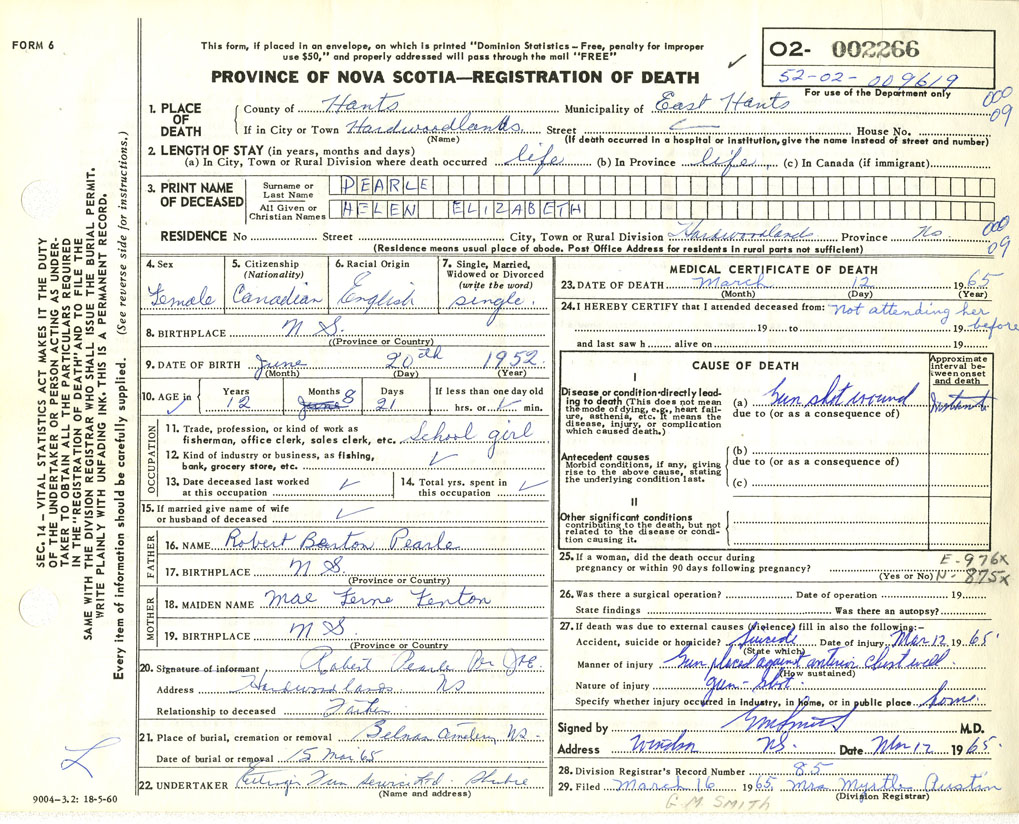 FORM 6
This form, if placed in an envelope, on which is printed "Dominion Statistics – Free, penalty for improper
use $50," and properly addressed will pass through the mail "FREE"
PROVINCE OF NOVA SCOTIA—REGISTRATION OF DEATH
O2- 002266
52-02-009619
For use of the Department only
000
09
1. PLACE OF DEATH
County of Hants Municipality of East Hants
If in City or Town Hardwoodlands Street House No.
(Name) (If death occurred in a hospital or institution, give the name instead of street and number)
2. LENGTH OF STAY (in years, months and days)
(a) In City, Town or Rural Division where death occurred life (b) In Province life (c) In Canada (if immigrant)
3. PRINT NAME OF DECEASED
Surname or Last Name PEARLE
All Given or Christian Names HELEN ELIZABETH
RESIDENCE No Street City, Town or Rural Division Hardwoodlands Province NS.
000
09
(Residence means usual place of abode. Post Office Address for residents in rural parts not sufficient)
4. Sex
Female
5. Citizenship (Nationality)
Canadian
6. Racial Origin
English
7. Single, Married, Widowed or Divorced (write the word)
single.
8. BIRTHPLACE N S.
(Province or Country)
9. DATE OF BIRTH June 20th 1952
(Month) (Day) (Year)
10. AGE in Years 12 Months 8 Days 21 If less than one day old hrs. or min.
OCCUPATION
11. Trade, profession, or kind of work as
fisherman, office clerk, sales clerk, etc. School girl
12. Kind of industry or business, as fishing,
bank, grocery store, etc.
13. Date deceased last worked
at this occupation
14. Total yrs. spent in
this occupation
15. If married give name of wife
or husband of deceased
FATHER
16. NAME Robert Barton Pearle
17. BIRTHPLACE N S.
(Province or Country)
MOTHER
18. MAIDEN NAME Mae Ferne Fenton
19. BIRTHPLACE N S.
(Province or Country
20. Signature of informant Robert Pearle Per
Address Hardwoodlands NS
Relationship to deceased Father
21. Place of burial, cremation or removal Belnan Cemetery NS.
Date of burial or removal 15 Mar 65
22. UNDERTAKER
(Name and address)
MEDICAL CERTIFICATE OF DEATH
23. DATE OF DEATH March 12 1965
(Month) (Day) (Year)
24. I HEREBY CERTIFY that I attended deceased from: Not attending her
19 to 19 before
and last saw h alive on 19
CAUSE OF DEATH
Approximate interval between onset and death
I
Disease or condition directly leading to death (This does not mean the mode of dying, e.g., heart failure, asthenia, etc. It means the disease, injury, or complication which caused death.)
(a) Gun shot wound
due to (or as a consequence of)
Antecedent causes
Morbid conditions, if any, giving rise to the above cause, stating the underlying condition last.
(b)
due to (or as a consequence of)
(c)
II
Other significant conditions
contributing to the death, but not related to the disease or condition causing it.
25. If a woman, did the death occur during
pregnancy or within 90 days following pregnancy?
(Yes or No)
E-976X
N-875X
26. Was there a surgical operation? Date of operation 19
State findings Was there an autopsy?
27. If death was due to external causes (violence) fill in also the following:—
Accident, suicide or homicide? Suicide Date of injury Mar 12 1965
(State which)
Manner of injury Gun placed against anterior chest wall.
(How sustained)
Nature of injury gun-shot.
Specify whether injury occurred in industry, in home, or in public place home.
Signed by M.D.
Address Windsor NS. Date Mar 12 1965
28. Division Registrar's Record Number 85
29. Filed March 16 1965 Mrs Myrtle Austin
(Division Registrar)
G M SMITH
9004–3.2: 18-5-60
SEC. 14 – VITAL STATISTICS ACT MAKES IT THE DUTY
OF THE UNDERTAKER OR PERSON ACTING AS UNDER-
TAKER TO OBTAIN ALL THE PARTICULARS REQUIRED
IN THE "REGISTRATION OF DEATH" AND TO FILE THE
SAME WITH THE DIVISION REGISTRAR WHO SHALL ISSUE THE BURIAL PERMIT.
WRITE PLAINLY WITH UNFADING INK. THIS IS A PERMANENT RECORD.
Every item of information should be carefully supplied. (See reverse side for instructions.)